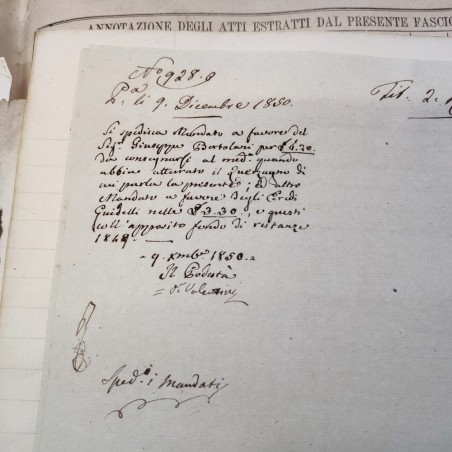 ANNOTAZIONE DEGLI ATTI ESTRATTI DAL PRESENTE FASCI
N.° 928. 8
P.a li 9. Dicembre 1850.
Tit. 2.
Si spedisca Mandato a favore del
Sig.r Giuseppe Bertolani per £ 6.30
da consegnarsi al med.o quando
abbia atturato il
di
cui parla la presente; Ed altro
Mandato a favore degli Eredi
Guidelli nelle £ 3.30, e questi
coll'apposito fondo di restanze
1849. —
- 9. Xmbre 1850. =
Il Podestà
Sped.i i Mandati